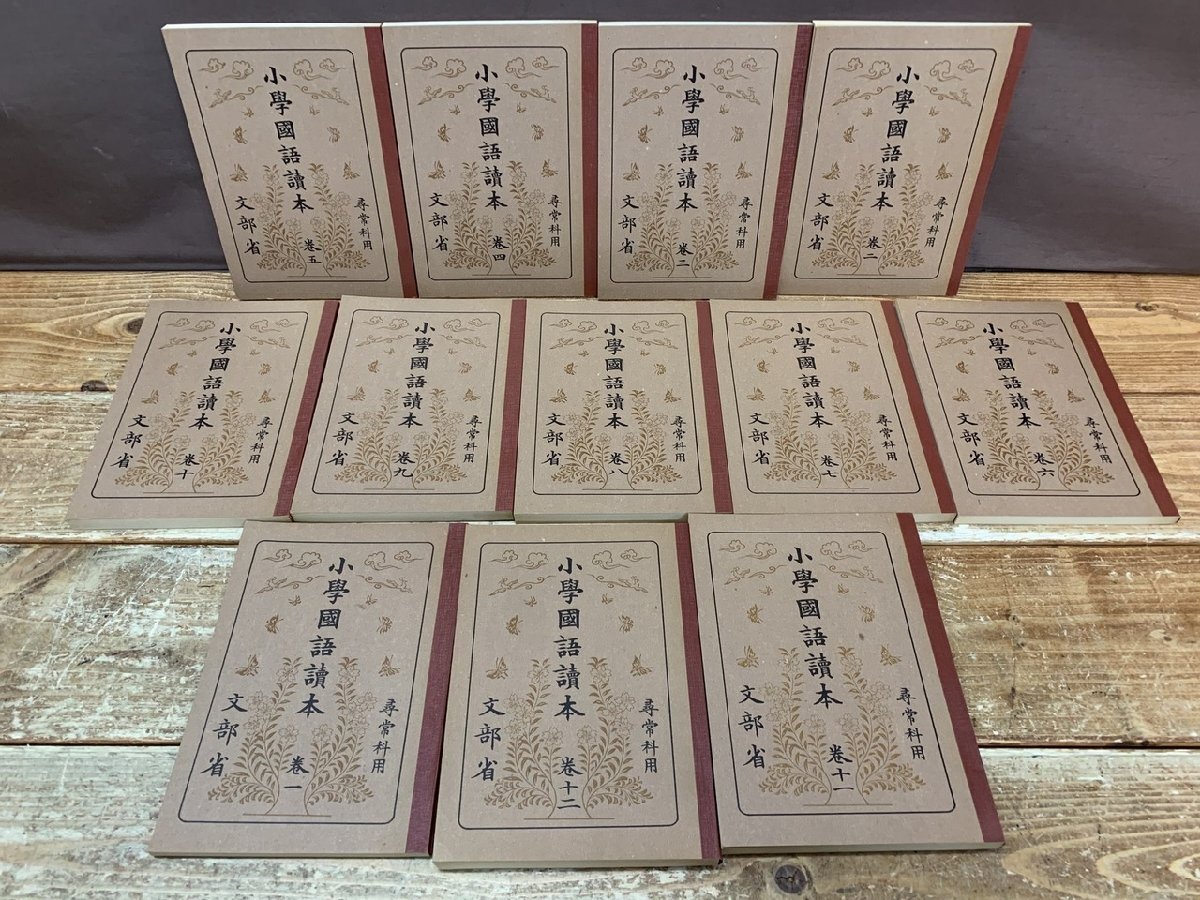 尋常科用
小學國語讀本 卷五
文部省
尋常科用
小學國語讀本 卷四
文部省
尋常科用
小學國語讀本 卷三
文部省
尋常科用
小學國語讀本 卷二
文部省
尋常科用
小學國語讀本 卷十
文部省
尋常科用
小學國語讀本 卷九
文部省
尋常科用
小學國語讀本 卷八
文部省
尋常科用
小學國語讀本 卷七
文部省
尋常科用
小學國語讀本 卷六
文部省
尋常科用
小學國語讀本 卷一
文部省
尋常科用
小學國語讀本 卷十二
文部省
尋常科用
小學國語讀本 卷十一
文部省